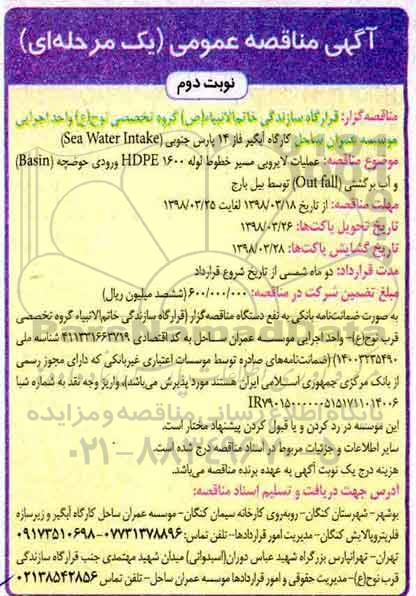 آگهی مناقصه عمومی (یک مرحله‌ای)
نوبت دوم
مناقصه‌گزار: قرارگاه سازندگی خاتم‌الانبیاء(ص) گروه تخصصی نوح(ع) واحد اجرایی
موسسه عمران ساحل کارگاه آبگیر فاز ۱۴ پارس جنوبی (Sea Water Intake)
موضوع مناقصه: عملیات لایروبی مسیر خطوط لوله HDPE ۱۶۰۰ ورودی حوضچه (Basin)
و آب برگشتی (Out fall) توسط بیل بارج
مهلت مناقصه: از تاریخ ۱۳۹۸/۰۳/۱۸ لغایت ۱۳۹۸/۰۳/۲۵
تاریخ تحویل پاکت‌ها: ۱۳۹۸/۰۳/۲۶
تاریخ گشایش پاکت‌ها: ۱۳۹۸/۰۳/۲۸
مدت قرارداد: دو ماه شمسی از تاریخ شروع قرارداد
مبلغ تضمین شرکت در مناقصه: ۶۰۰/۰۰۰/۰۰۰ (ششصد میلیون ریال)
به صورت ضمانت‌نامه بانکی به نفع دستگاه مناقصه‌گزار (قرارگاه سازندگی خاتم‌الانبیاء گروه تخصصی
قرب نوح(ع)- واحد اجرایی موسسه عمران ساحل به کد اقتصادی ۴۱۱۳۳۱۶۶۳۷۱۹ شناسه ملی
۱۴۰۰۳۲۳۵۴۹۰) (ضمانت‌نامه‌های صادره توسط موسسات اعتباری غیربانکی که دارای مجوز رسمی
از بانک مرکزی جمهوری اسلامی ایران هستند مورد پذیرش می‌باشد)، واریز وجه نقد به شماره شبا
این موسسه در رد کردن و یا قبول کردن پیشنهاد مختار است.
سایر اطلاعات و جزئیات مربوط در اسناد مناقصه درج شده است.
هزینه درج یک نوبت آگهی به عهده برنده مناقصه می‌باشد.
آدرس جهت دریافت و تسلیم اسناد مناقصه:
بوشهر- شهرستان کنگان- روبه‌روی کارخانه سیمان کنگان- موسسه عمران ساحل کارگاه آبگیر و زیرسازه
فلرپتروپالایش کنگان- مدیریت امور قراردادها- تلفن تماس: ۰۷۷۳۱۳۷۸۸۹۶-۰۹۱۷۳۵۱۰۶۹۸
تهران- تهرانپارس بزرگراه شهید عباس دوران(استخوانی) میدان شهید مهتمدی جنب قرارگاه سازندگی
قرب نوح(ع)- مدیریت حقوقی و امور قراردادها موسسه عمران ساحل- تلفن تماس ۰۲۱۳۸۵۴۲۸۵۶
پایگاه اطلاع رسانی مناقصه و مزایده